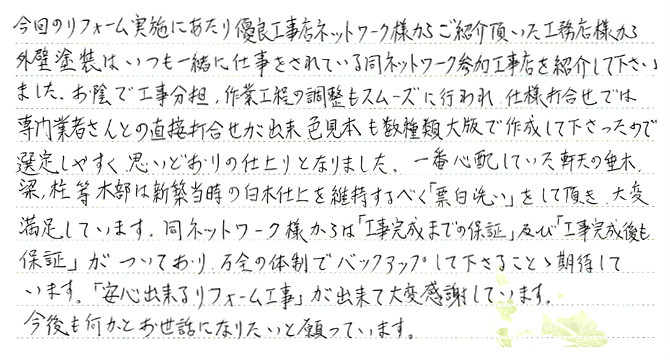 今回のリフォーム実施にあたり優良工事店ネットワーク様からご紹介頂いた工務店様から
外壁塗装は、いつも一緒に仕事をされている同ネットワーク参加工事店を紹介して下さい
ました。お陰で工事分担、作業工程の調整もスムーズに行われ、仕様打合せでは
専門業者さんとの直接打合せが出来、色見本も数種類大版で作成して下さったので
選定しやすく、思いどおりの仕上りとなりました。一番心配していた軒天の垂木、
梁、柱等木部は新築当時の白木仕上を維持するべく「漂白洗い」をして頂き、大変
満足しています。同ネットワーク様からは「工事完成までの保証」及び「工事完成後も
保証」がついており、万全の体制でバックアップして下さることゝ期待して
います。「安心出来るリフォーム工事」が出来て大変感謝しています。
今後も何かとお世話になりたいと願っています。